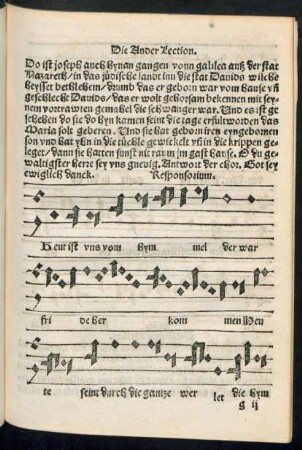 Die Ander Lection.
Do ist joseph auch hynan gangen vonn galilea auß der stat
Nazareth/ in das jüdische landt inn die stat Dauids wilche
heysset bethlehem/ drumb das er geborn war vom hause vñ
geschlecht Dauids/ das er wolt gehorsam bekennen mit sey-
nem vortrawten gemahel die schwanger war. Und es ist ge
schehen do sie do hyn kamen seint die tage erfultworden das
Maria solt geberen. Und sie hat geborn iren eyngebornen
son vnd hat yhn in die tüchle gewickelt vñ in die krippen ge-
leget/ dann sie hatten sunst nit raum jm gast hause. O du ge-
waltigster herre sey vns gnedig. Antwort der chor. Got sey
ewiglich danck. Responsorium.
Heut ist vns vom hym mel der war
fri de her kom men Heu
te seint durch die gantze wer let die hym
g ij